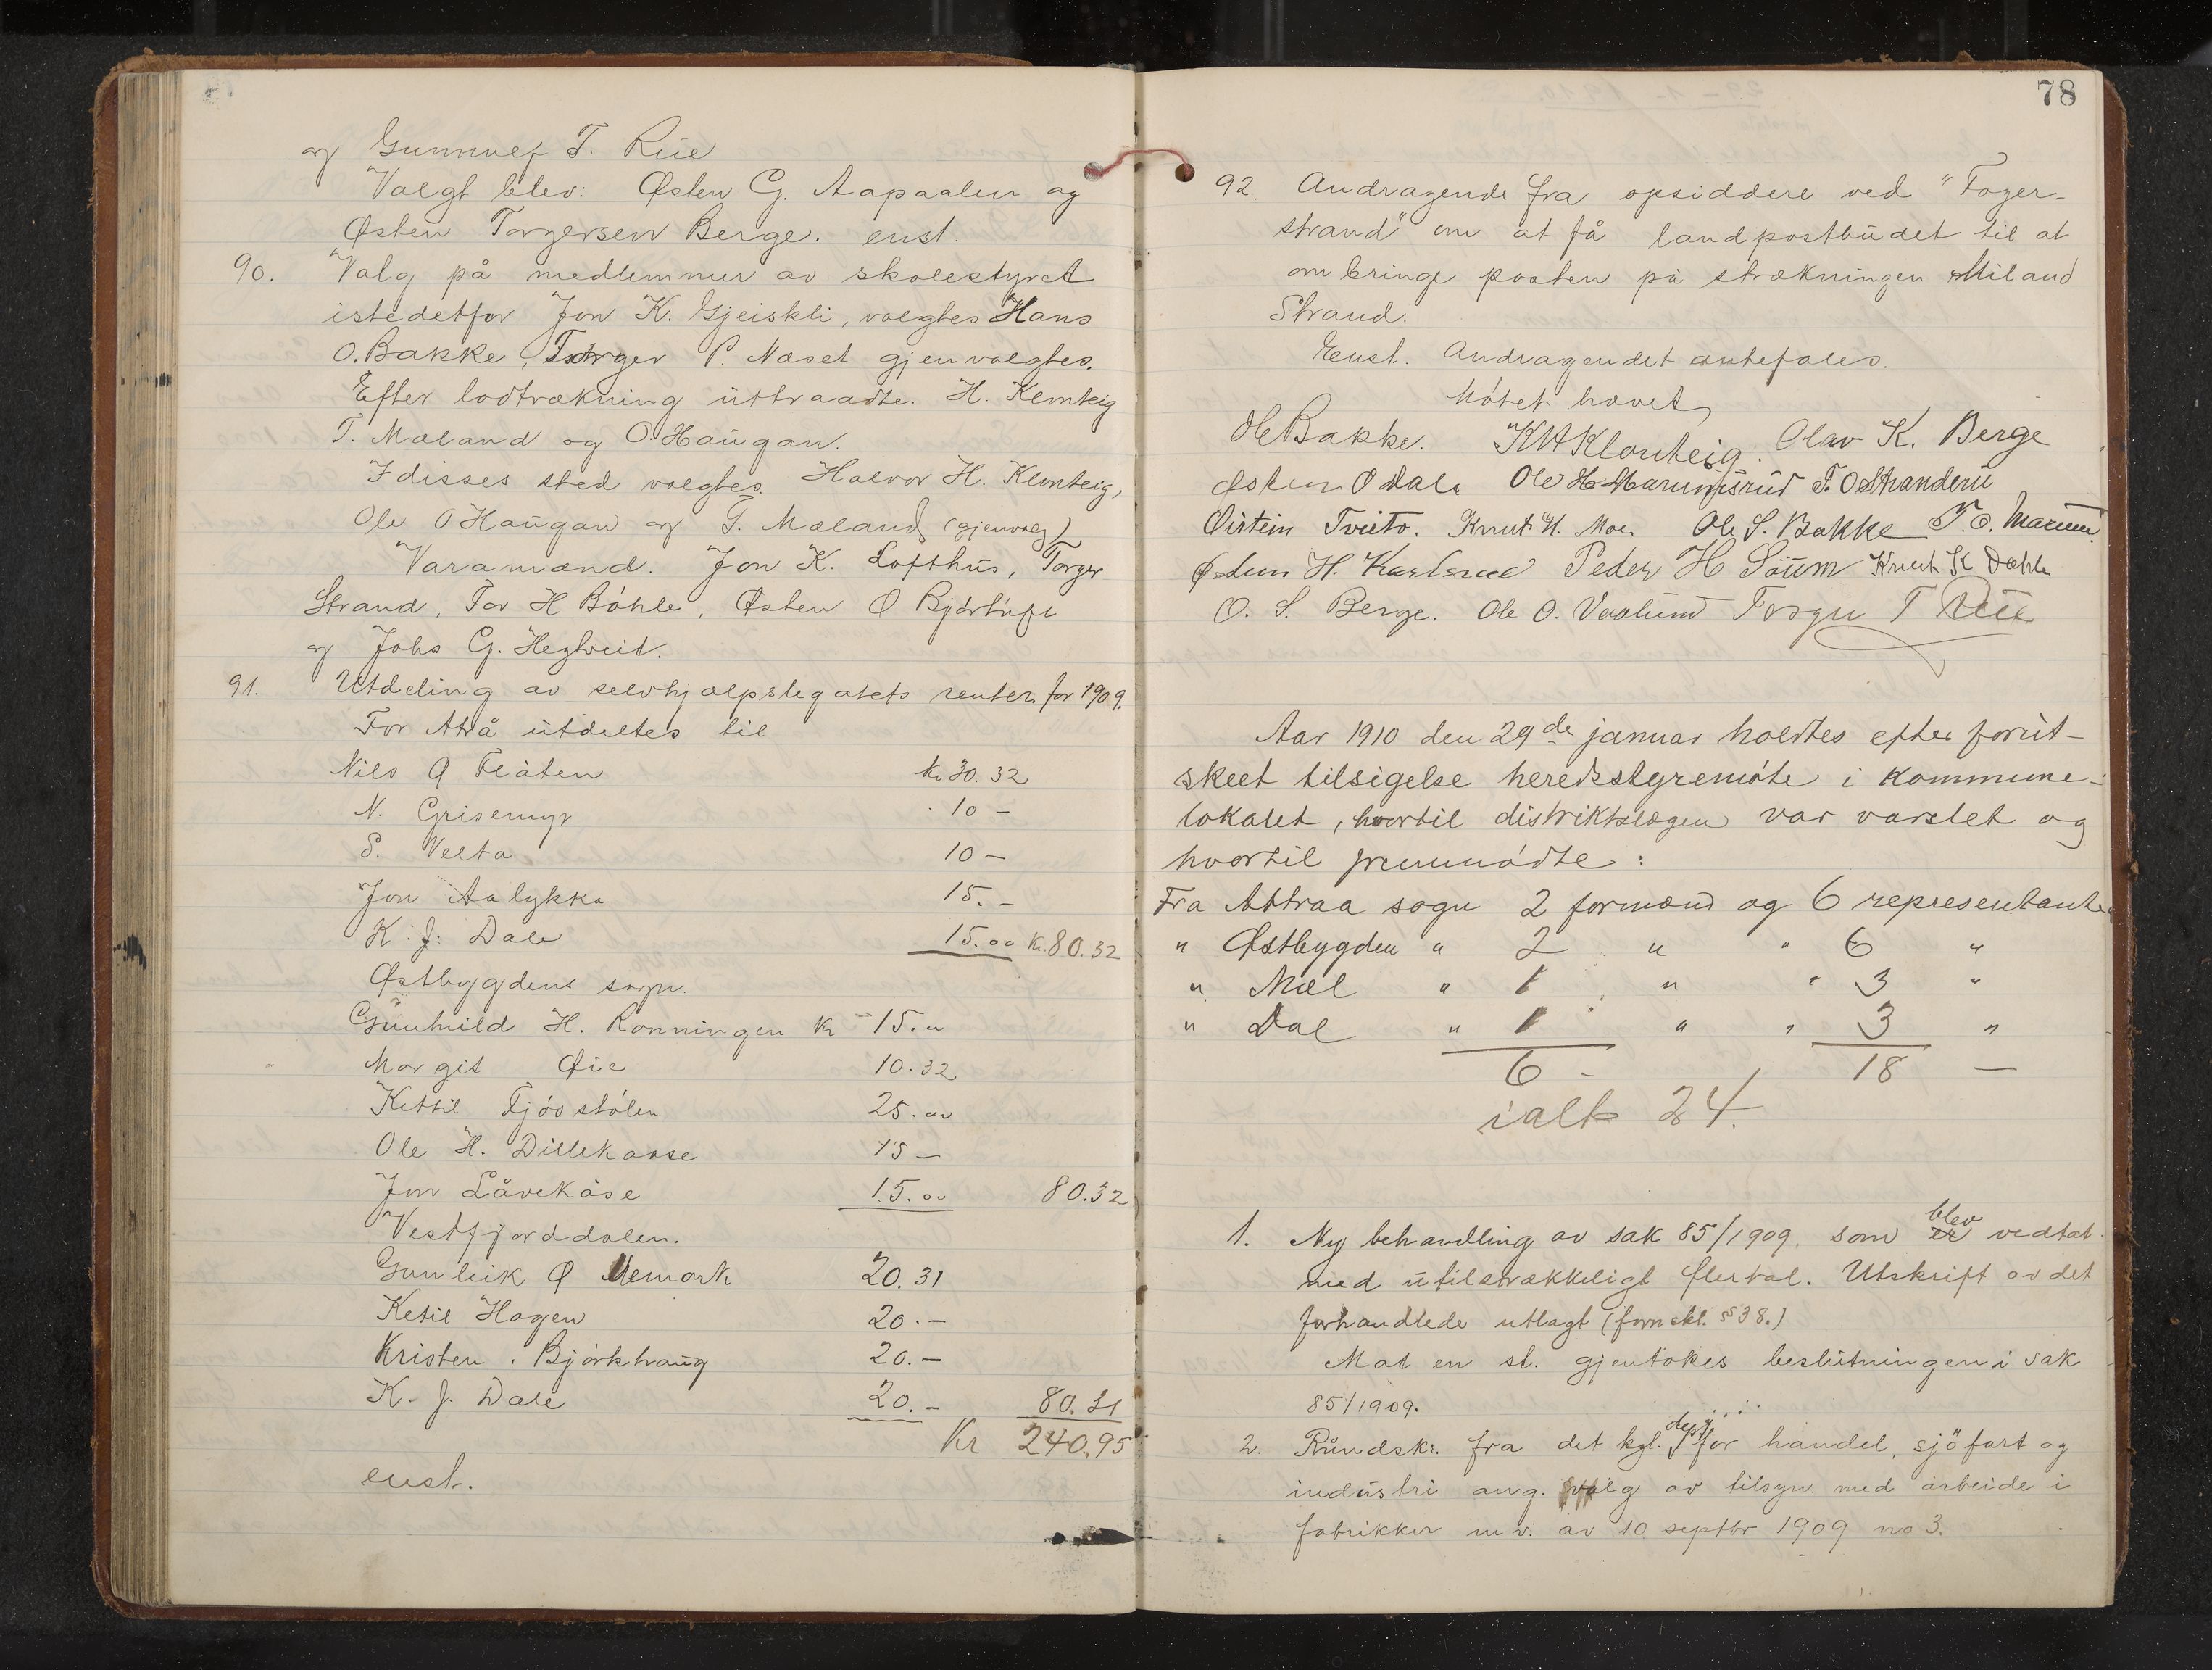 og Gunnulf T. Rue
Valgt blev: Østen G. Aapaalen og
Østen Torgersen Berge. enst.
90. Valg på medlemmer av skolestyret
istedetfor Jon K. Gjeiskli, valgtes Hans
O. Bakke, Torger P. Næset gjenvalgtes.
Efter lodtrækning uttraadte. H. Klonteig
T. Mæland og O. Haugan.
I disses sted valgtes. Halvor H. Klonteig,
Ole O Haugan og T. Mæland (gjenvalg)
Varamænd. Jon K. Lofthus, Torger
Strand, Tor H Böhle, Østen O
og Johs G. Hegtveit.
91. Utdeling av selvhjælpslegatets renter for 1909.
For Atrå utdeltes til
Nils O Flåten Kr 30.32
N. Grisemyr 10 –
S. Velta 10 –
Jon Aalykka 15. –
K. J. Dale 15.00 Kr. 80.32
Østbygdens sogn.
Gunhild H. Rønningen Kr 15.00
Margit Øie 10.32
Kittil Fjösstölen 25.00
Ole H. Dillekaase 15 –
Jon Låvekåse 15.00 80.32
Vestfjorddalen.
Gunleik O Vemork 20.31
Ketil Hagen 20. –
Kristen. Björkhaug 20. –
K. J. Dale 20. – 80.31
Kr 240.95
enst.
78
92. Andragende fra opsiddere ved "Fager-
strand" om at få landpostbudet til at
ombringe posten på strækningen Miland
Strand.
Enst. Andragendet anbefales.
Mötet hævet
Ole Bakke. KH Klonteig. Olav K. Berge
Østen O Dale Ole H. Marumsrud T. O Stranderu
Öistein Tveito. Knut H. Moe. Ole S. Bakke T. O. Marum.
Østen H. Peder H Söum Knut K Dahle
O. S. Berge. Ole O. Vaalund Torger T Rue
Aar 1910 den 29de januar holdtes efter forut-
skeet tilsigelse heredsstyremöte i kommune-
lokalet, hvortil distriktslægen var varslet og
hvortil fremmödte:
Fra Attraa sogn 2 formænd og 6 representanter
" Østbygden " 2 " " 6 "
" Mæl " 1 " " 3 "
" Dal " 1 " " 3 "
6 – 18 —
ialt 24.
1. Ny behandling av sak 85/1909. som er blev vedtat
med utilstrækkeligt flertal. Utskrift av det
forhandlede utlagt (formskl. § 38.)
Mot en st. gjentokes beslutningen i sak
85/1909.
2. Rundskr. fra det kgl. dept. for handel, sjöfart og
industri ang. valg av tilsyn med arbeide i
fabrikker m.v. av 10 septbr 1909 no 3.